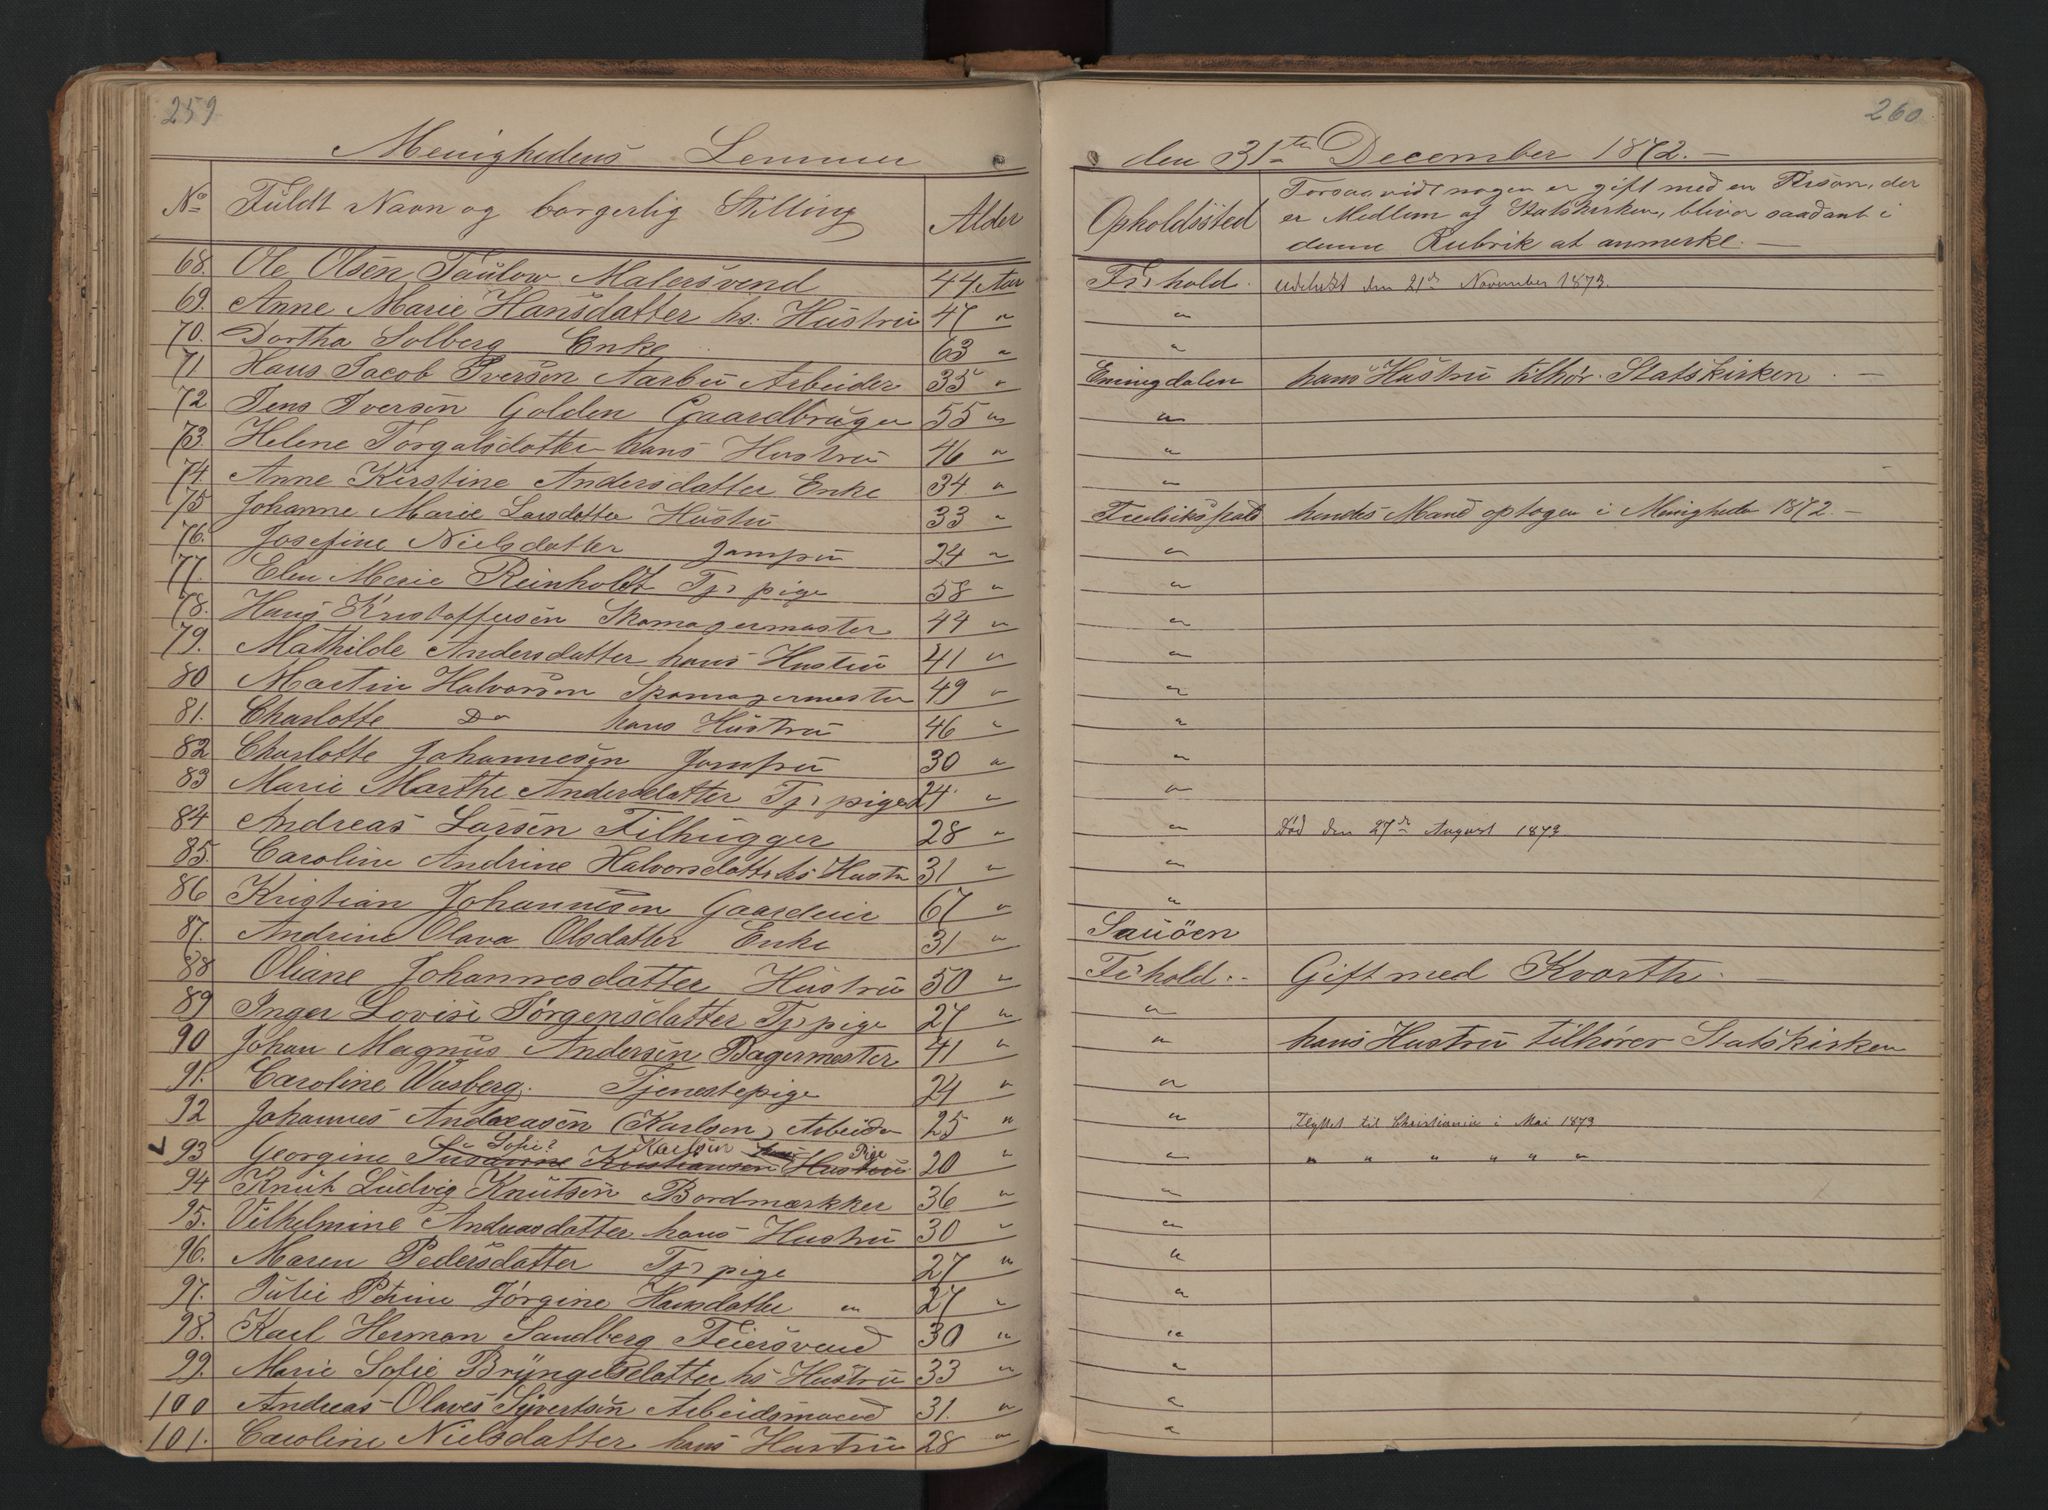 259
260
Menighedens Lemmer
den 31te December 1872.
No Fuldt Navn og borgerlig Stilling Alder
Opholdssted
Forsaavidt nogen er gift med en Person, der
er Medlem af Statskirken, bliver saadant i
denne Rubrik at anmerke.
68. Ole Olsen Taulow Malersvend 44 Aar Fr:hald. udslukt den 21de November 1873.
69. Anne Marie Hansdatter hs: Hustru 47 " "
70. Dortha Solberg Enke 63 " "
71 Hans Jacob Iversen Aarbu Arbeider 35 " Enningdalen hans Hustru tilhør. Statskirken.
72 Jens Iversen Golden Gaardbruger 55 " "
73. Helene Torgalsdatter hans Hustru 46 " "
74. Anne Kirstine Andersdatter Enke 34. " "
75 Johanne Marie Larsdatter Hustru 33 " Fredriksstad hendes Mand optagen i Menigheden 1872.
76. Josefine Nielsdatter Jomfru 24 " "
77. Elen Merie Reinholdt Tj: pige 58 " "
78. Hans Kristoffersen Skomagermester 44 " "
79. Mathilde Andersdatter hans Hustru 41 " "
80 Martin Halvorsen Skomagermester 49 " "
81. Charlotte Do hans Hustru 46 " "
82 Charlotte Johannesen Jomfru 30 " "
83 Marie Marthe Andersdatter Tj: pige 24 " "
84 Andreas Larsen Filhugger 28 " " Død den 27de August 1873.
85. Caroline Andrine Halvorsdatter hs Hustru 31 " "
86 Kristian Johannesen Gaardeier 67 " "
87. Andrine Olava Olsdatter Enke 31 " Sauöen
88 Oliane Johannesdatter Hustru 50 " Fr:hald. Gift med Kvarth.
89 Inger Lovise Jørgensdatter Tj: pige 27 " "
90 Johan Magnus Andersen Bagermester 41 " " hans Hustru tilhører Statskirken
91. Caroline Wasberg. Tjenestepige 24 " "
92 Johannes Andreasen (Karlsen) Arbeider 25 " " Flyttet til Christiania i Mai 1873
Sofie? Karlsen Pige
93 Georgine Susanne Kristiansen Hustru 20 " " " " " " " "
94 Knut Ludvig Knutsen Bordmærkker 36 " "
95. Vilhelmine Andreasdatter hans Hustru 30 " "
96. Maren Pedersdatter Tj: pige 27 " "
97. Julie Petrine Jørgine Hansdatter " 27 " "
98. Karl Herman Sandberg Feiersvend 30 " "
99. Marie Sofie Bryngelsdatter hs Hustru 33 " "
100 Andreas Olaves Syvertsen Arbeidsmand 31. " "
101. Caroline Nielsdatter hans Hustru 28 " "